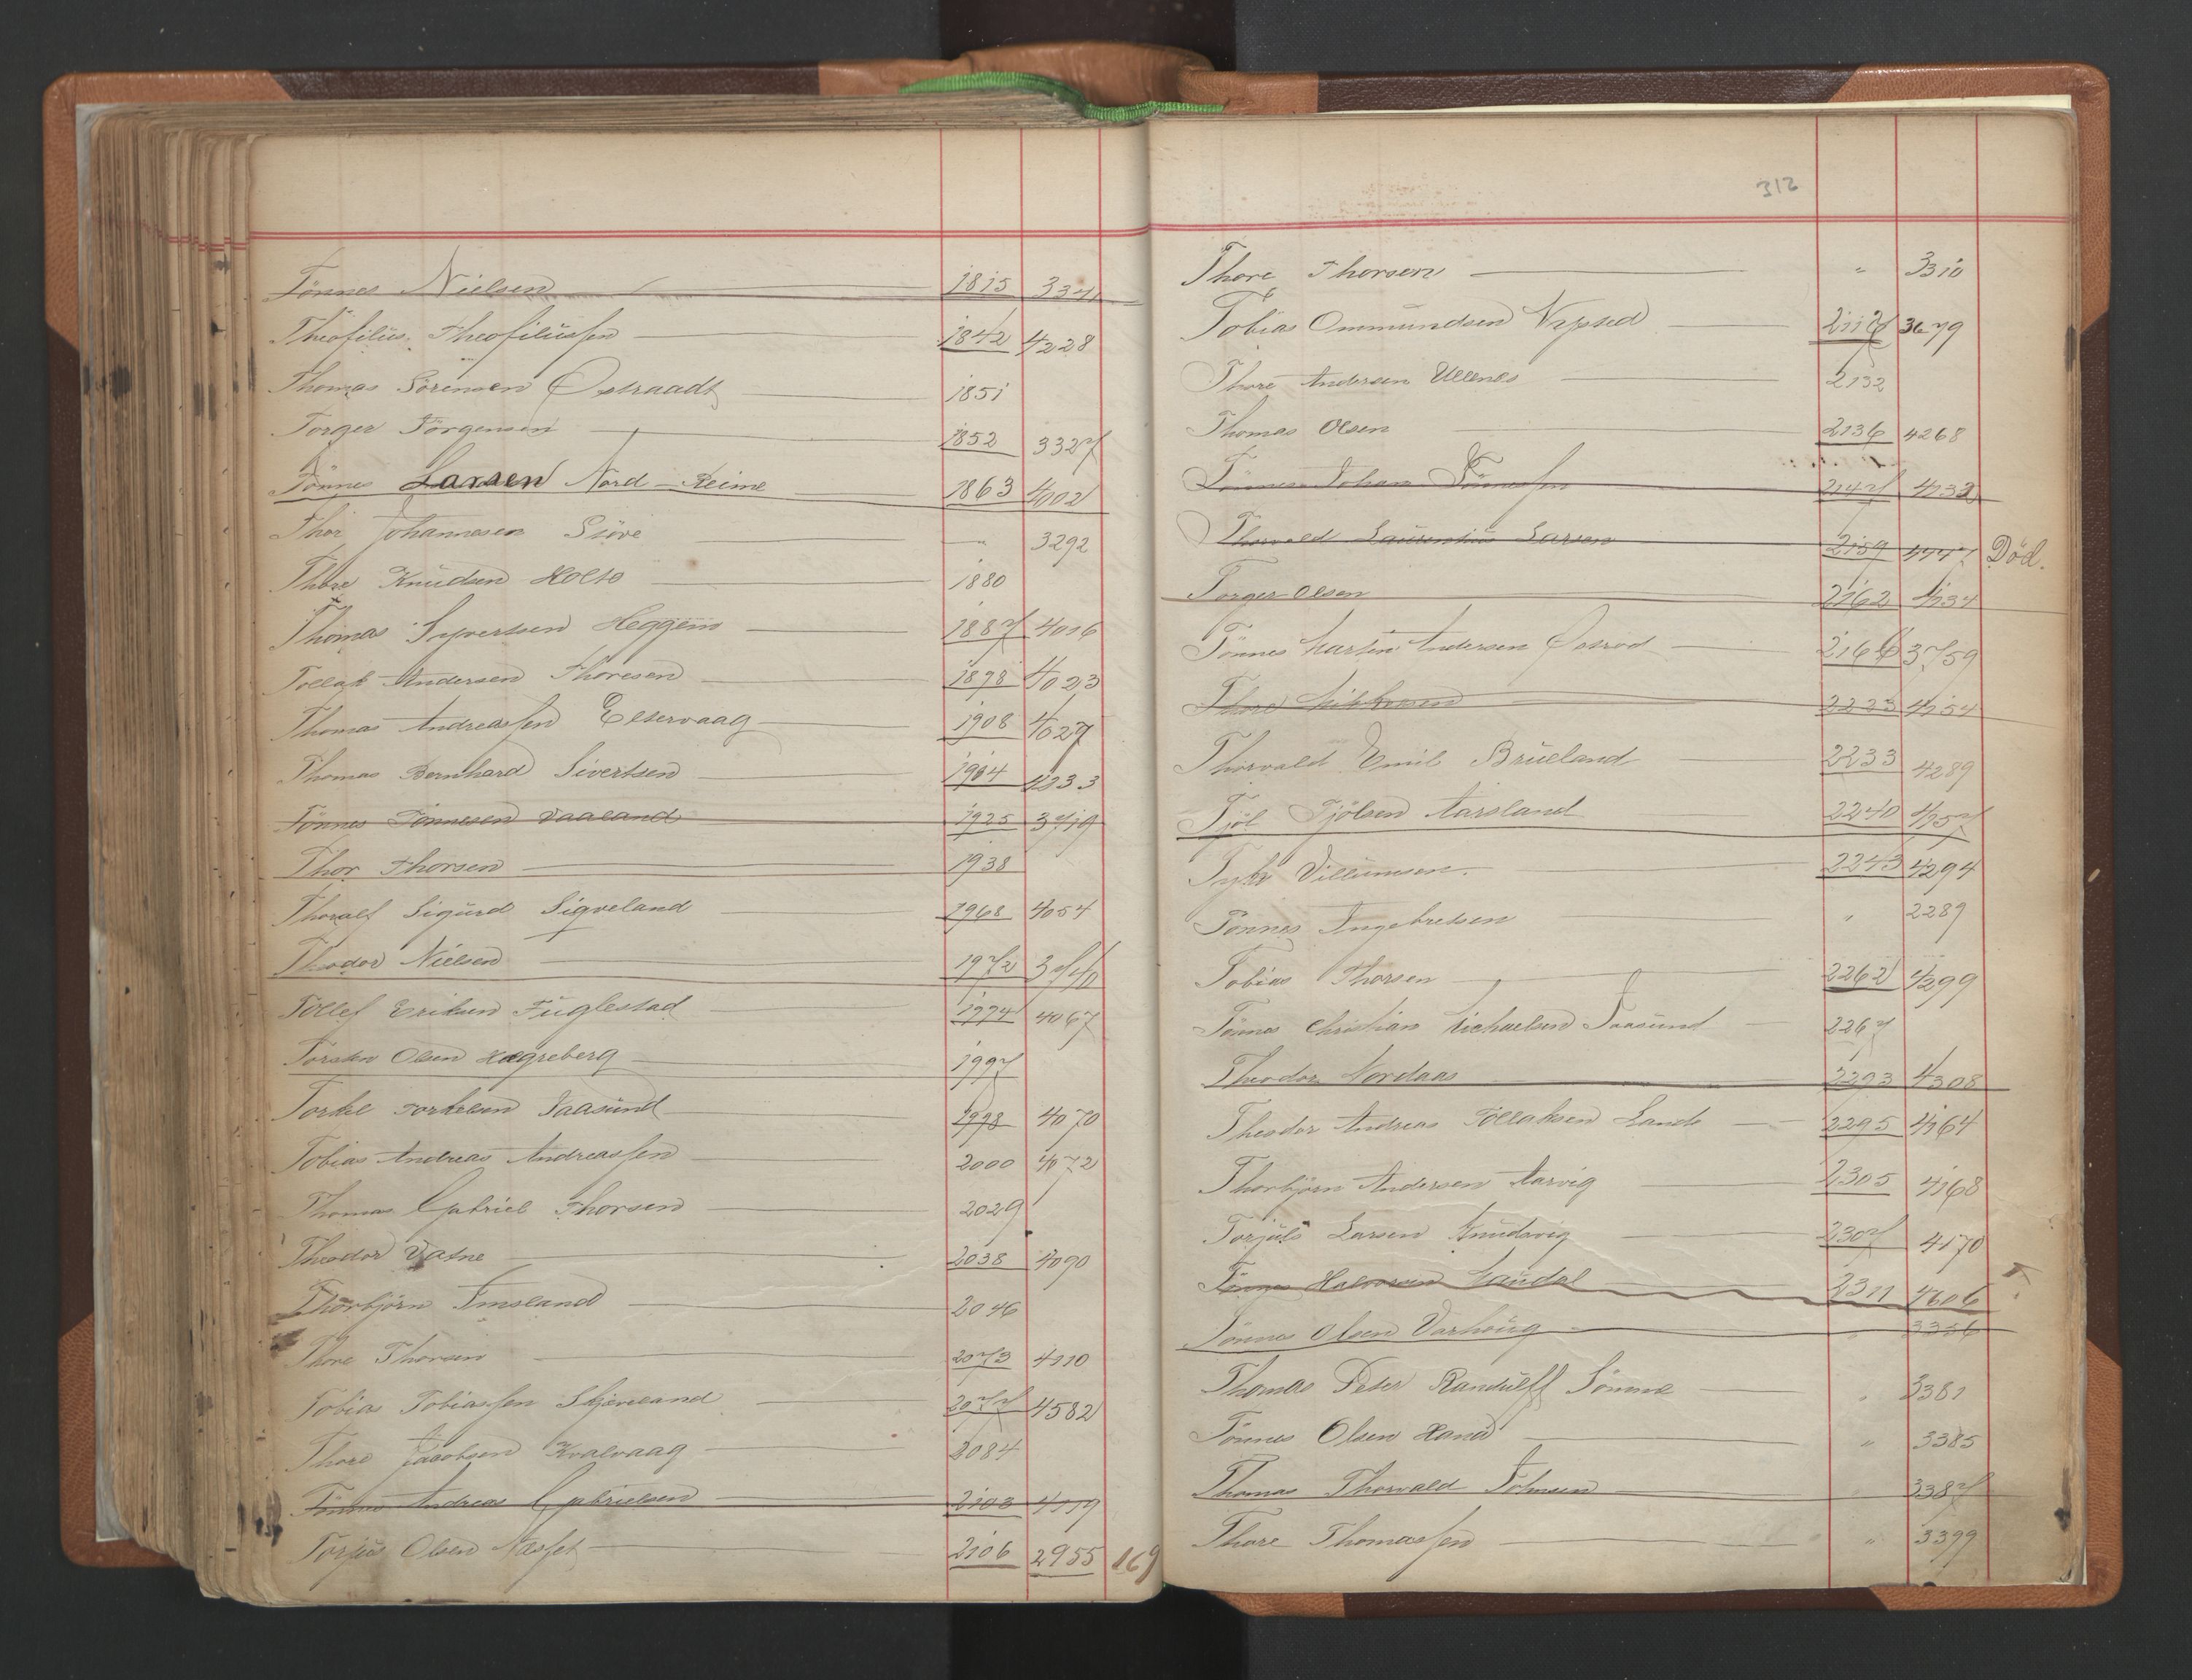 Tönnes Nielsen 1815 3341
Theofilius Theofiliussen 1842 4228
Thomas Sörensen Östraadt 1851
Torger Törgensen 1852 3327
Tönnes Larsen Nord-Reime 1863 4002
Thor Johannesen Siöre " 3292
Thore Knudsen Holte 1880
Thomas Syvertsen Heggem 1887 4016
Tollak Andersen Thoresen 1898 4023
Thomas Andreassen Eltervaag 1908 4027
Thomas Bernhard Sivertsen 1914 4233
Tönnes Tönnesen Vaaland 1925 3719
Thor Thorsen 1938
Thoralf Sigurd Sigveland 1968 4054
Theodor Nielsen 1972 3740
Tollef Eriksen Fuglestad 1974 4067
Torsten Olsen Hægreberg 1997
Torkel Torkelsen Taasund 1998 4070
Tobias Andreas Andreassen 2000 4072
Thomas Gabriel Thorsen 2029
Theodor Vatne 2038 4090
Thorbjörn Imsland 2046
Thore Thorsen 2073 4110
Tobias Tobiassen Skjæveland 2077 4582
Thore Jacobsen Kvalvaag 2084
Tönnes Andreas Gabrielsen 2103 4119
Torjus Olsen Næsset 2106 2955 169
312
Thore Thorsen " 3310
Tobias Ommundsen 2117 3679
Thore Andersen Ullenes 2132
Thomas Olsen 2136 4268
Tönnes Johan Tönnessen 2147 4132
Thorvald Laurentius Larsen 2159 4447 Död.
Torger Olsen 2162 4134
Tönnes Martin Andersen Östrod 2166 3759
Thore 2223 4154
Thorvald Emil Brueland 2233 4289
Tjöl Tjölsen Aarsland 2240 4157
Tyke Villumsen. 2243 4294
Tönnes Ingebretsen " 2289
Tobias Thorsen 2262 4299
Tönnes Christian Michaelsen Taasund 2267
Theodor Nordaas 2293 4308
Theodor Andreas Tollaksen Lande 2295 4164
Thorbjörn Andersen Aarvig 2305 4168
Torjuls Larsen Knudsvig 2307 4170
Tönnes Halvorsen Haudal 2311 4606
Tönnes Olsen Varhoug " 3356
Thomas Peter Randulff Sömme " 3381
Tönnes Olsen Hana " 3385
Thomas Thorvald Johnsen " 3387
Thore Thomassen " 3399